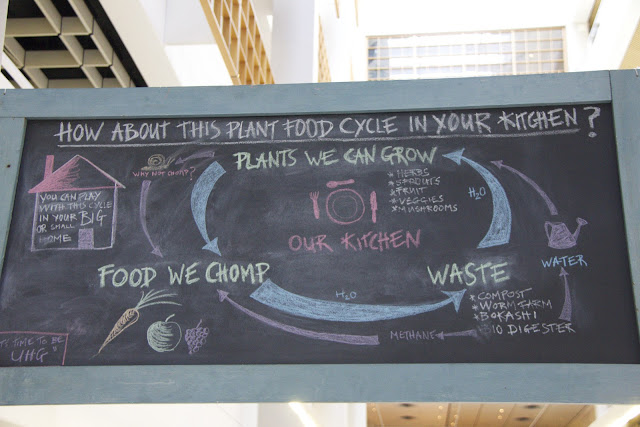 HOW ABOUT THIS PLANT FOOD CYCLE IN YOUR KITCHEN?
WHY NOT CHOMP?
PLANTS WE CAN GROW
* HERBS
* SPROUTS
* FRUIT
* VEGGIES
* MUSHROOMS
H₂O
YOU CAN PLAY
WITH THIS CYCLE
IN YOUR BIG
OR SMALL
HOME
OUR KITCHEN
WATER
FOOD WE CHOMP
WASTE
H₂O
* COMPOST
* WORM FARM
* BOKASHI
BIO DIGESTER
METHANE
TIME TO BE
UHG